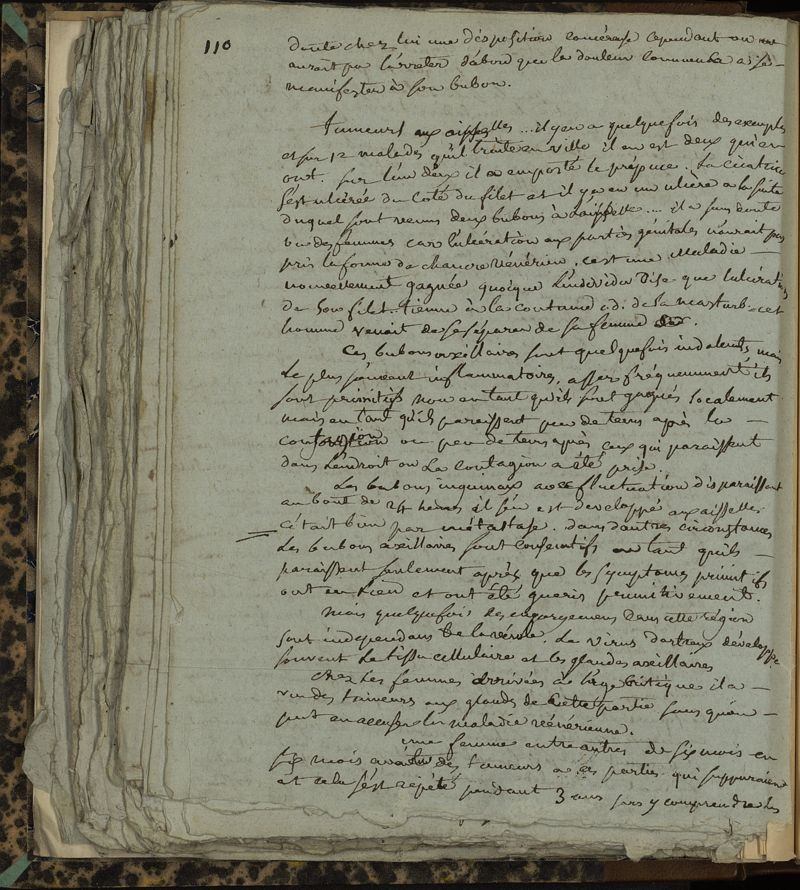 110
doute chez lui une disposition concéreuse cependant on
auroit pu l'arreter d'abord que la douleur commenca a se
manifester à son bubon.
Tumeurs aux aisselles ... il y en a quelquefois des exemples
et sur 12 malades qu'il traite en ville il en est deux qui en
ont. sur l'un d'eux il a emporté le prépuce. La cicatrice
s'est ulcérée du coté du filet et il y a eu un ulcère a la suite
duquel sont venus deux bubons à l'aisselle.... il a sans doute
vu des femmes car l'ulcération aux parties génitales n'auroit pas
pris la forme de chancre vénérien. c'est une maladie
nouvellement gagnée quoique l'individu dise que l'ulcération
de son filet tienne à la coutume de la masturb. cet
homme venoit de se séparer de sa femme
Ces bubons axillaires sont quelquefois indolents, mais
le plus souvent inflammatoires, assez fréquemment ils
sont primitifs non en tant qu'ils sont gagnés localement
mais en tant qu'ils paraissent peu de tems après la
contagion ou peu de tems après ceux qui paraissent
dans l'endroit ou la contagion a été prise.
Les bubons inguinaux avec fluctuation disparaissant
au bout de 24 heures il s'en est developpé aux aisselles
c'était bien par métastase. dans d'autres circonstances
les bubons axillaires sont consécutifs en tant qu'ils
paraissent seulement après que les symptomes primitifs
ont eu lieu et ont été gueris
mais quelquefois les engorgemens dans cette région
sont independans de la vérole. Le virus dartreux développe
souvent le tissu cellulaire et les glandes axillaires
Chez les femmes arrivées à l'age critique il a
vu des tumeurs aux glandes de cette partie sans qu'on
put en accuser la maladie vénérienne.
une femme entre autres de six mois en
six mois avait des tumeurs a ces parties qui suppuraient
et cela s'est répété pendant 3 ans sans y comprendre les